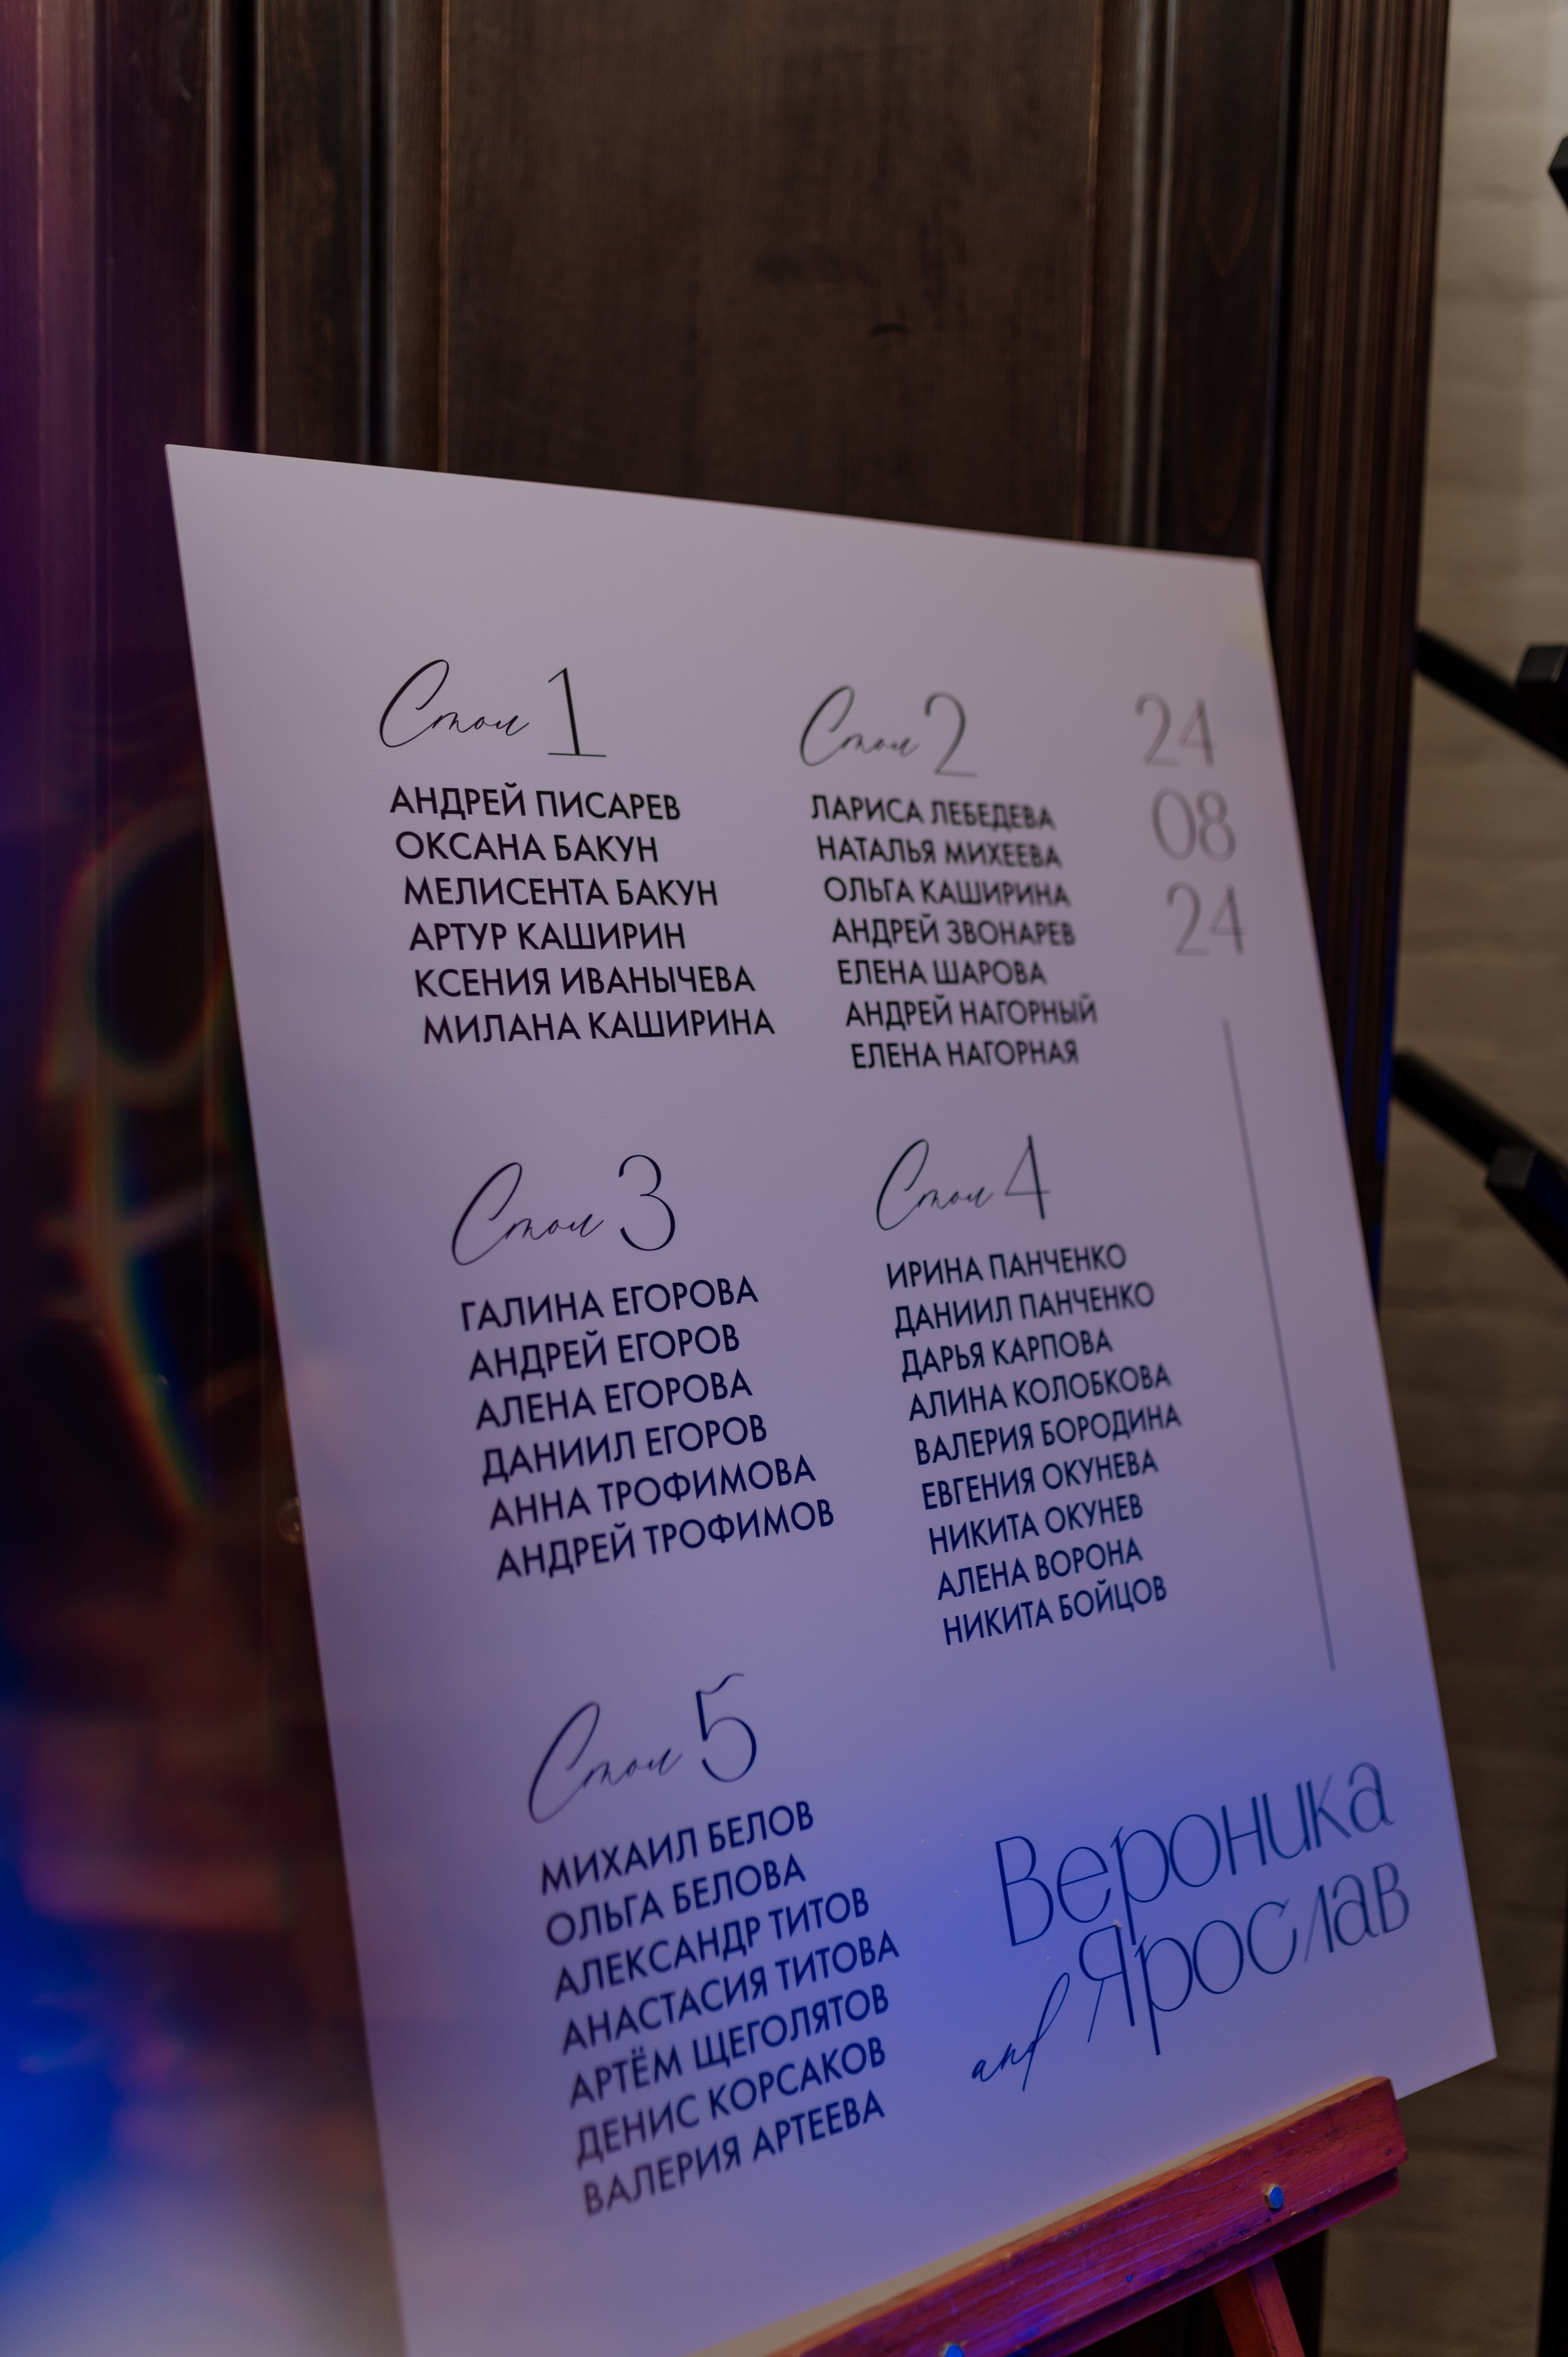 Стол 1
АНДРЕЙ ПИСАРЕВ
ОКСАНА БАКУН
МЕЛИСЕНТА БАКУН
АРТУР КАШИРИН
КСЕНИЯ ИВАНЫЧЕВА
МИЛАНА КАШИРИНА
Стол 2
ЛАРИСА ЛЕБЕДЕВА
НАТАЛЬЯ МИХЕЕВА
ОЛЬГА КАШИРИНА
АНДРЕЙ ЗВОНАРЕВ
ЕЛЕНА ШАРОВА
АНДРЕЙ НАГОРНЫЙ
ЕЛЕНА НАГОРНАЯ
24
08
24
Стол 3
ГАЛИНА ЕГОРОВА
АНДРЕЙ ЕГОРОВ
АЛЕНА ЕГОРОВА
ДАНИИЛ ЕГОРОВ
АННА ТРОФИМОВА
АНДРЕЙ ТРОФИМОВ
Стол 4
ИРИНА ПАНЧЕНКО
ДАНИИЛ ПАНЧЕНКО
ДАРЬЯ КАРПОВА
АЛИНА КОЛОБКОВА
ВАЛЕРИЯ БОРОДИНА
ЕВГЕНИЯ ОКУНЕВА
НИКИТА ОКУНЕВ
АЛЕНА ВОРОНА
НИКИТА БОЙЦОВ
Стол 5
МИХАИЛ БЕЛОВ
ОЛЬГА БЕЛОВА
АЛЕКСАНДР ТИТОВ
АНАСТАСИЯ ТИТОВА
АРТЁМ ЩЕГОЛЯТОВ
ДЕНИС КОРСАКОВ
ВАЛЕРИЯ АРТЕЕВА
Вероника
and Ярослав